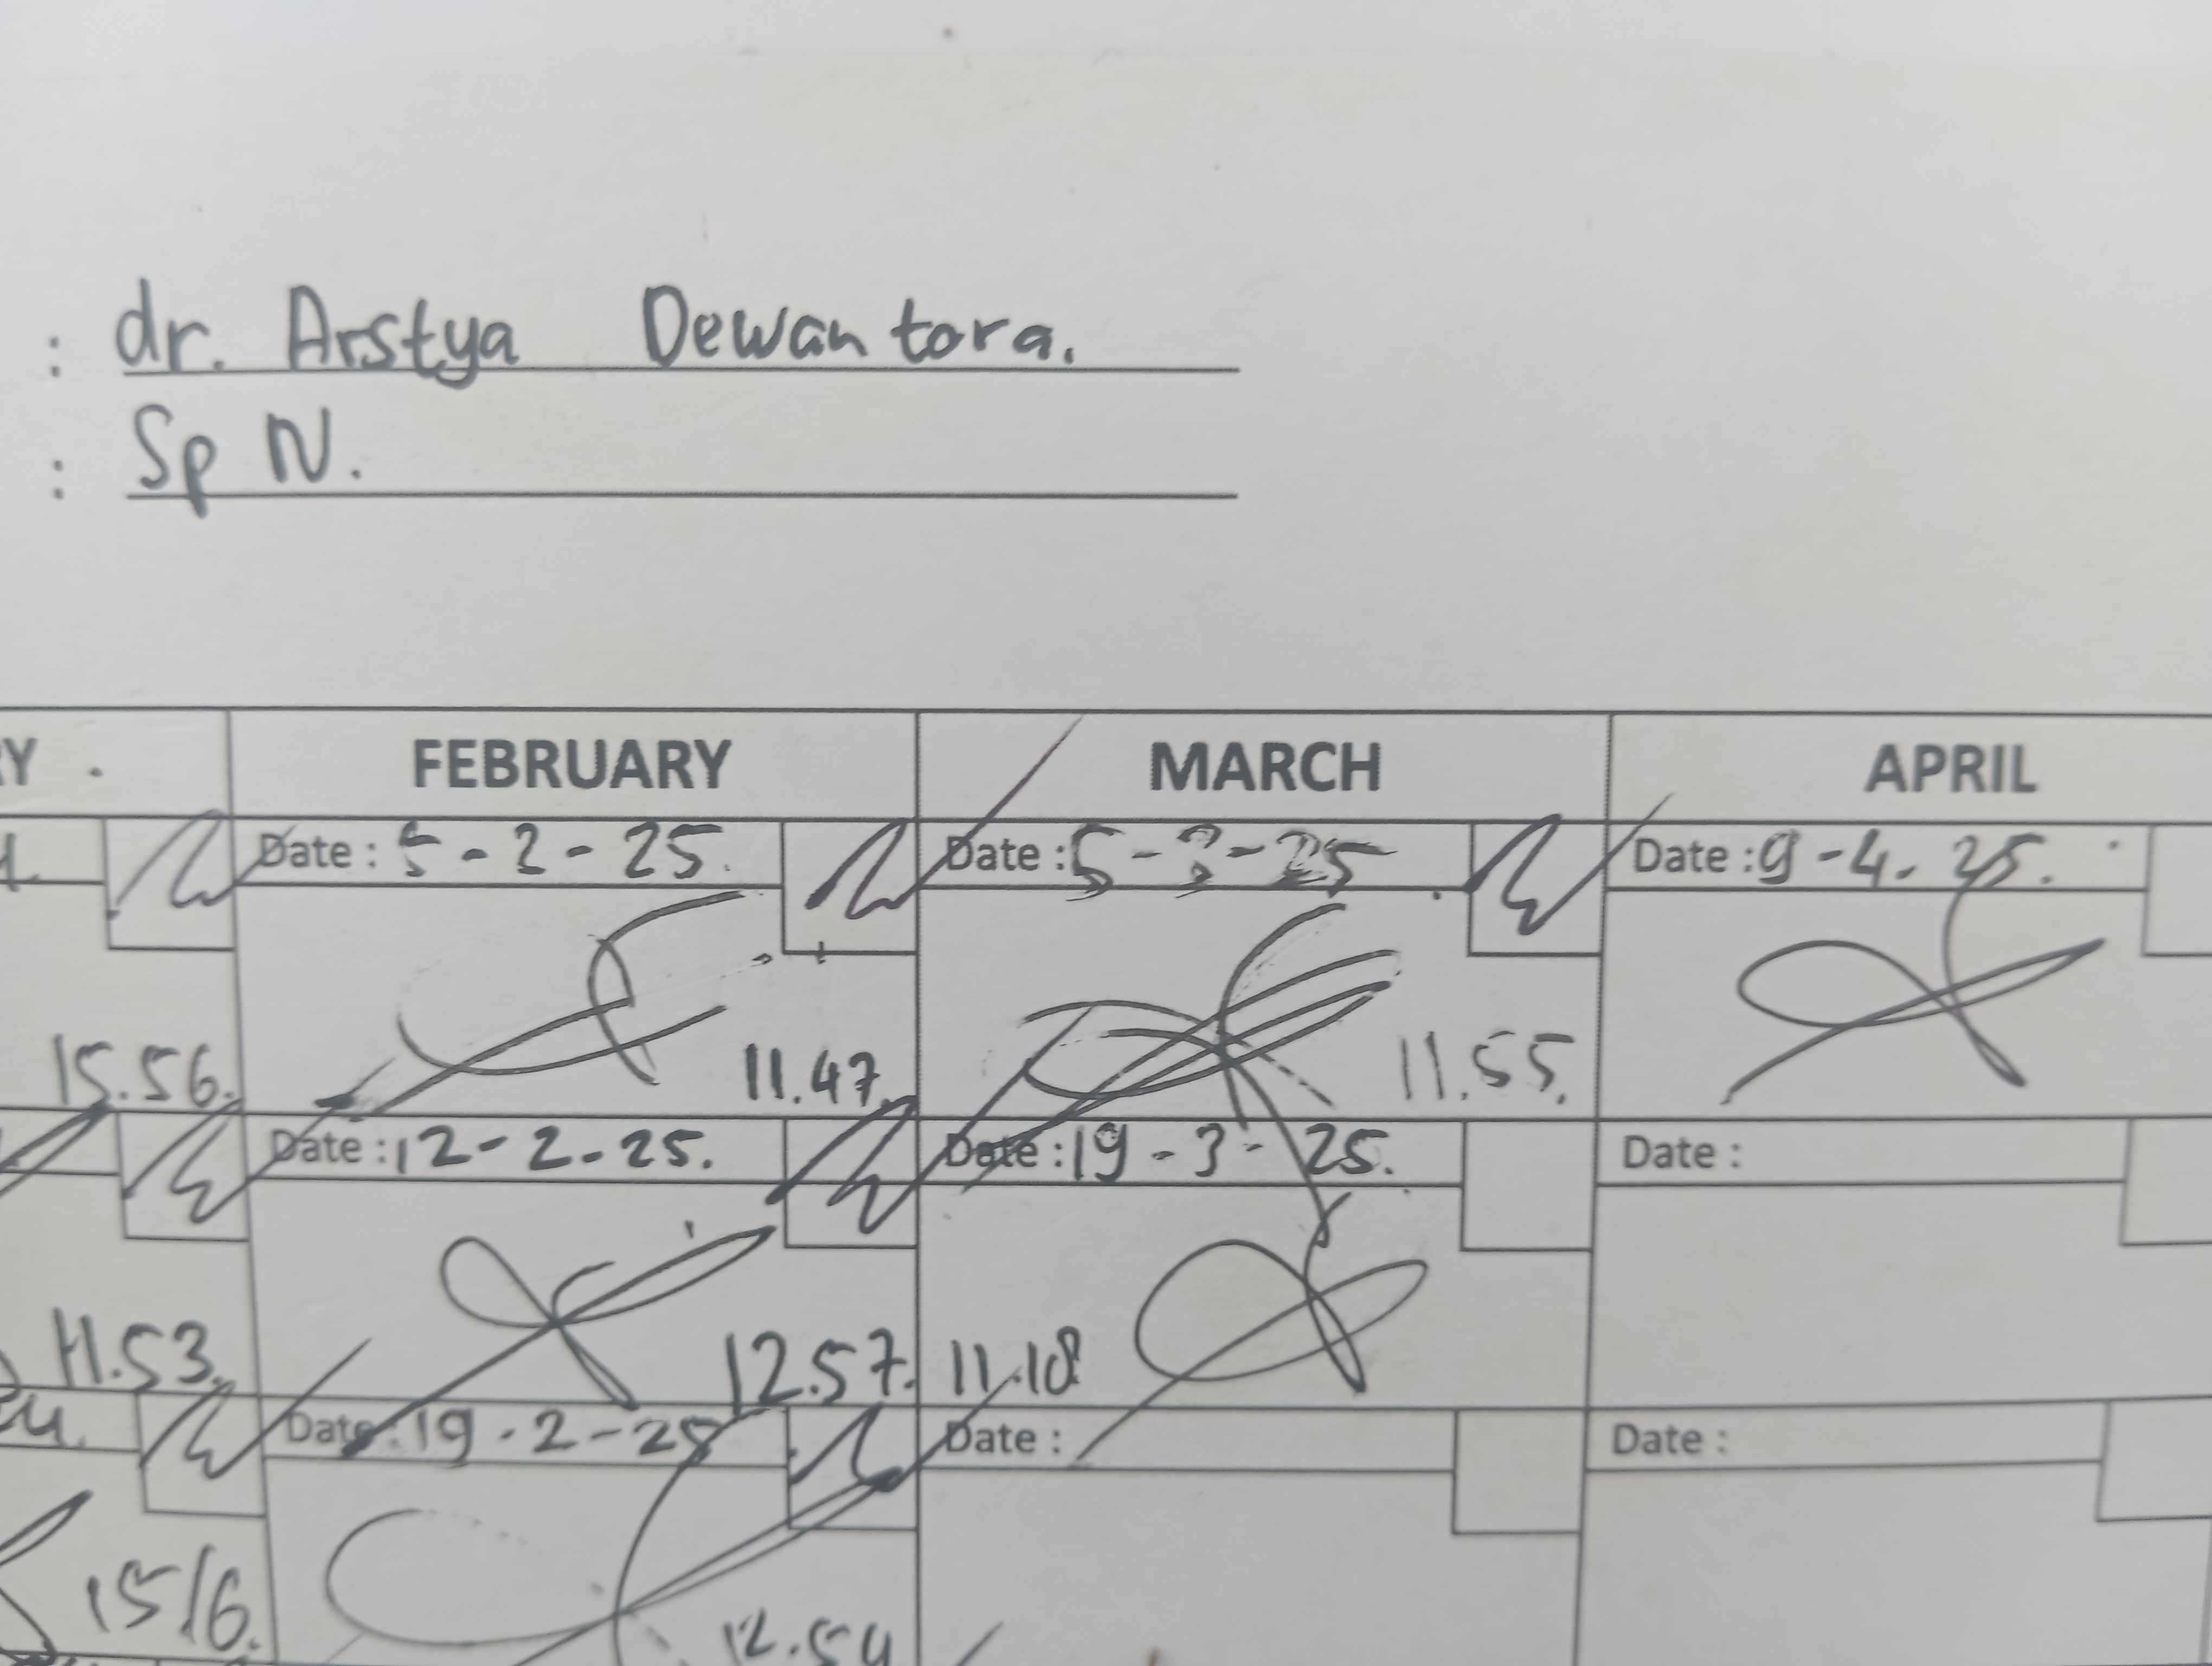 : dr. Arstya Dewantora.
: Sp N.
RY FEBRUARY MARCH APRIL
Date : 5-2-25. Date : 5-3-25 Date : 9-4-25.
15.56. 11.47. 11.55.
Date : 12-2-25. Date : 19-3-25. Date :
11.53. 12.57. 11.18
Date : 19-2-25 Date : Date :
15 16. 12.54